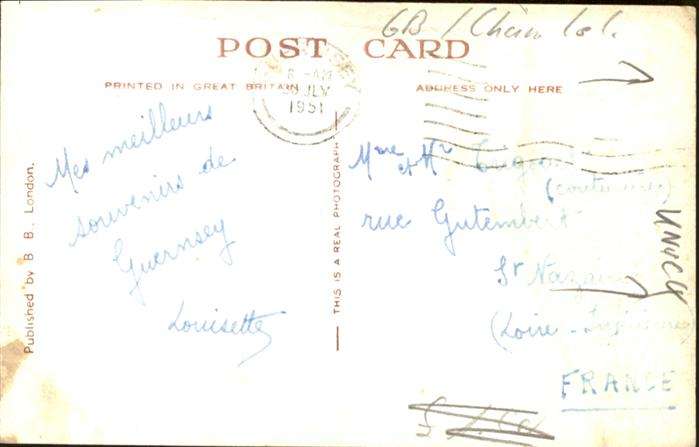 GB / Chan Isl.
POST CARD
PRINTED IN GREAT BRITAIN
ADDRESS ONLY HERE
JLY
1951
Mes meilleurs
souvenirs de
Guernsey
Louisette
Published by B B, London.
THIS IS A REAL PHOTOGRAPH
Mme et Mr
rue Gutemberg
St Nazaire
(Loire - Inférieure)
FRANCE